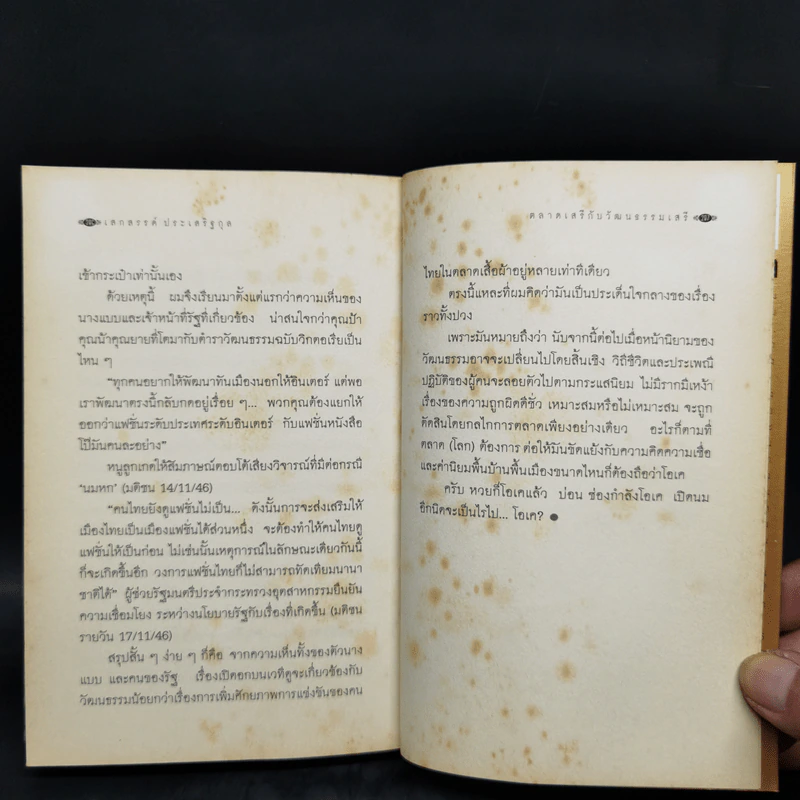 เสกสรรค์ ประเสริฐกุล
เข้ากระเป๋าเท่านั้นเอง
ด้วยเหตุนี้ ผมจึงเรียนมาตั้งแต่แรกว่าความเห็นของ
นางแบบและเจ้าหน้าที่รัฐที่เกี่ยวข้อง น่าสนใจกว่าคุณป้า
คุณน้าคุณยายที่โตมากับตำราวัฒนธรรมฉบับวิกตอเรียเป็น
ไหน ๆ
“ทุกคนอยากให้พัฒนาทันเมืองนอกให้อินเตอร์ แต่พอ
เราพัฒนาตรงนี้กลับกดอยู่เรื่อย ๆ... พวกคุณต้องแยกให้
ออกว่าแฟชั่นระดับประเทศระดับอินเตอร์ กับแฟชั่นหนังสือ
โป๊มันคนละอย่าง”
หนูลูกเกดให้สัมภาษณ์ตอบโต้เสียงวิจารณ์ที่มีต่อกรณี
‘นมหก’ (มติชน 14/11/46)
“คนไทยยังดูแฟชั่นไม่เป็น... ดังนั้นการจะส่งเสริมให้
เมืองไทยเป็นเมืองแฟชั่นได้ส่วนหนึ่ง จะต้องทำให้คนไทยดู
แฟชั่นให้เป็นก่อน ไม่เช่นนั้นเหตุการณ์ในลักษณะเดียวกันนี้
ก็จะเกิดขึ้นอีก วงการแฟชั่นไทยก็ไม่สามารถทัดเทียมนานา
ชาติได้” ผู้ช่วยรัฐมนตรีประจำกระทรวงอุตสาหกรรมยืนยัน
ความเชื่อมโยง ระหว่างนโยบายรัฐกับเรื่องที่เกิดขึ้น (มติชน
รายวัน 17/11/46)
สรุปสั้น ๆ ง่าย ๆ ก็คือ จากความเห็นทั้งของตัวนาง
แบบ และคนของรัฐ เรื่องเปิดอกบนเวทีดูจะเกี่ยวข้องกับ
วัฒนธรรมน้อยกว่าเรื่องการเพิ่มศักยภาพการแข่งขันของคน
ตลาดเสรีกับวัฒนธรรมเสรี
ไทยในตลาดเสื้อผ้าอยู่หลายเท่าทีเดียว
ตรงนี้แหละที่ผมคิดว่ามันเป็นประเด็นใจกลางของเรื่อง
ราวทั้งปวง
เพราะมันหมายถึงว่า นับจากนี้ต่อไปเมื่อหน้านิยามของ
วัฒนธรรมอาจจะเปลี่ยนไปโดยสิ้นเชิง วิถีชีวิตและประเพณี
ปฏิบัติของผู้คนจะลอยตัวไปตามกระแสนิยม ไม่มีรากมีเหง้า
เรื่องของความถูกผิดดีชั่ว เหมาะสมหรือไม่เหมาะสม จะถูก
ตัดสินโดยกลไกการตลาดเพียงอย่างเดียว อะไรก็ตามที่
ตลาด (โลก) ต้องการ ต่อให้มันขัดแย้งกับความคิดความเชื่อ
และค่านิยมพื้นบ้านพื้นเมืองขนาดไหนก็ต้องถือว่าโอเค
ครับ หวยก็โอเคแล้ว บ่อน ซ่องกำลังโอเค เปิดนม
อีกนิดจะเป็นไรไป... โอเค?